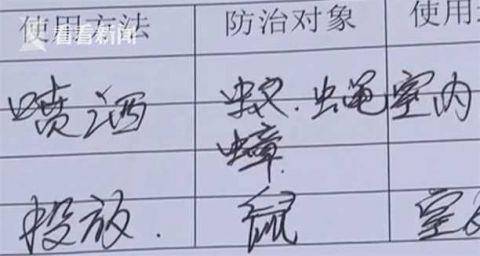 看看新闻
使用方法 防治对象 使用
喷洒 蚊.蝇 室内
蟑
投放. 鼠 室